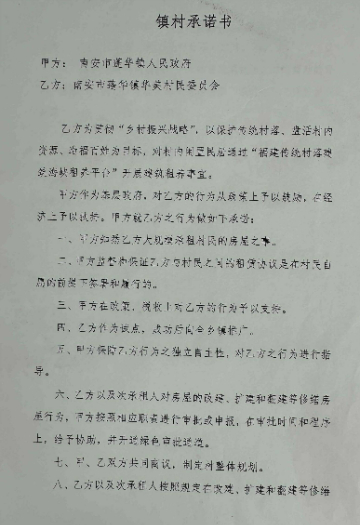 镇村承诺书
甲方：南安市蓬华镇人民政府
乙方：南安市蓬华镇华美村民委员会
乙方为贯彻“乡村振兴战略”，以保护传统村落、盘活村内
资源、为福百姓为目标，对村内闲置民居通过“福建传统村落建
筑海峡租养平台”开展建筑租养事宜。
甲方作为基层政府，对乙方的行为从政策上予以鼓励，在经
济上予以扶持。甲方就乙方之行为做如下承诺：
一、甲方知悉乙方大规模承租村民的房屋之事。
二、甲方监督和保证乙方与村民之间的租赁协议是在村民自
愿的前提下签署和履行的。
三、甲方在政策、税收上对乙方的行为予以支持。
四、乙方作为试点，成功后向全乡镇推广。
五、甲方保障乙方行为之独立自主性，对乙方之行为进行指
导。
六、乙方以及次承租人对房屋的改建、扩建和翻建等修缮房
屋行为，甲方按照相应职责进行审批或申报，在审批时间和程序
上，给予协助，并开通绿色审批通道。
七、甲、乙双方共同商议，制定村整体规划。
八、乙方以及次承租人按照规定在改建、扩建和翻建等修缮